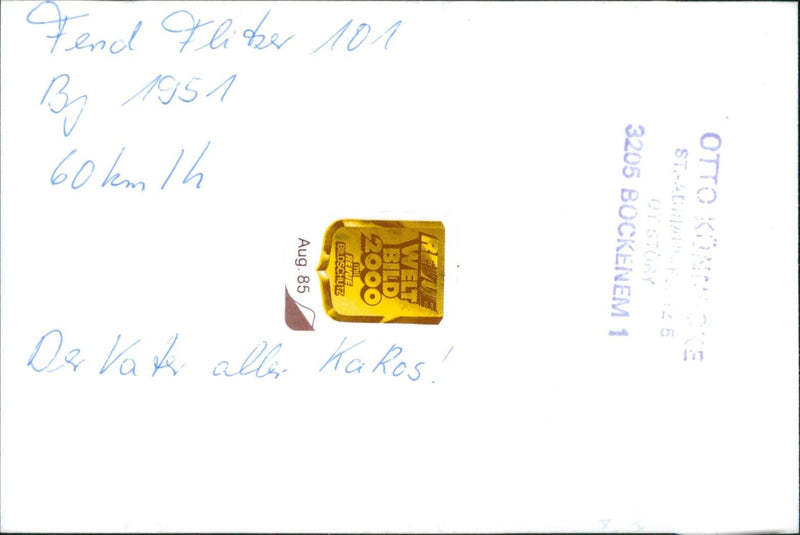 Fend Flitzer 101
Bj 1951
60 km/h
Der Vater aller KaRos!
Aug. 85
REVUE
WELT
BILD
2000
mit
REVUE
BILDSCHUTZ
OTTO
OT STÖRY
3205 BOCKENEM 1